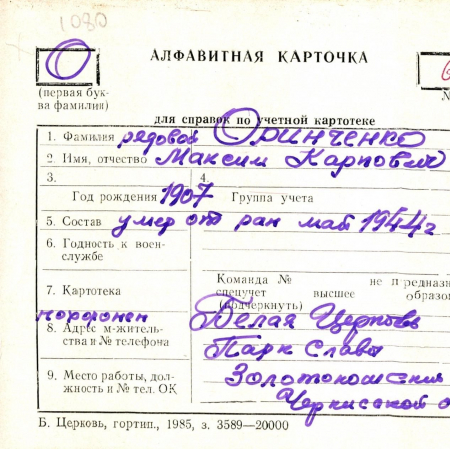 1080
О
АЛФАВИТНАЯ КАРТОЧКА
(первая бук-
ва фамилии)
для справок по учетной картотеке
1. Фамилия рядовой Оринченко
2. Имя, отчество Максим Карпович
3. 4.
Год рождения 1907 Группа учета
5. Состав умер от ран май 1944 г
6. Годность к воен-
службе
Команда № не предназ
7. Картотека спецучет высшее образо
(подчеркнуть)
похоронен Белая Церковь
8. Адрес м-житель-
ства и № телефона Парк Славы
9. Место работы, дол-
жность и № тел. ОК
Б. Церковь, гортип., 1985, з. 3589—20000